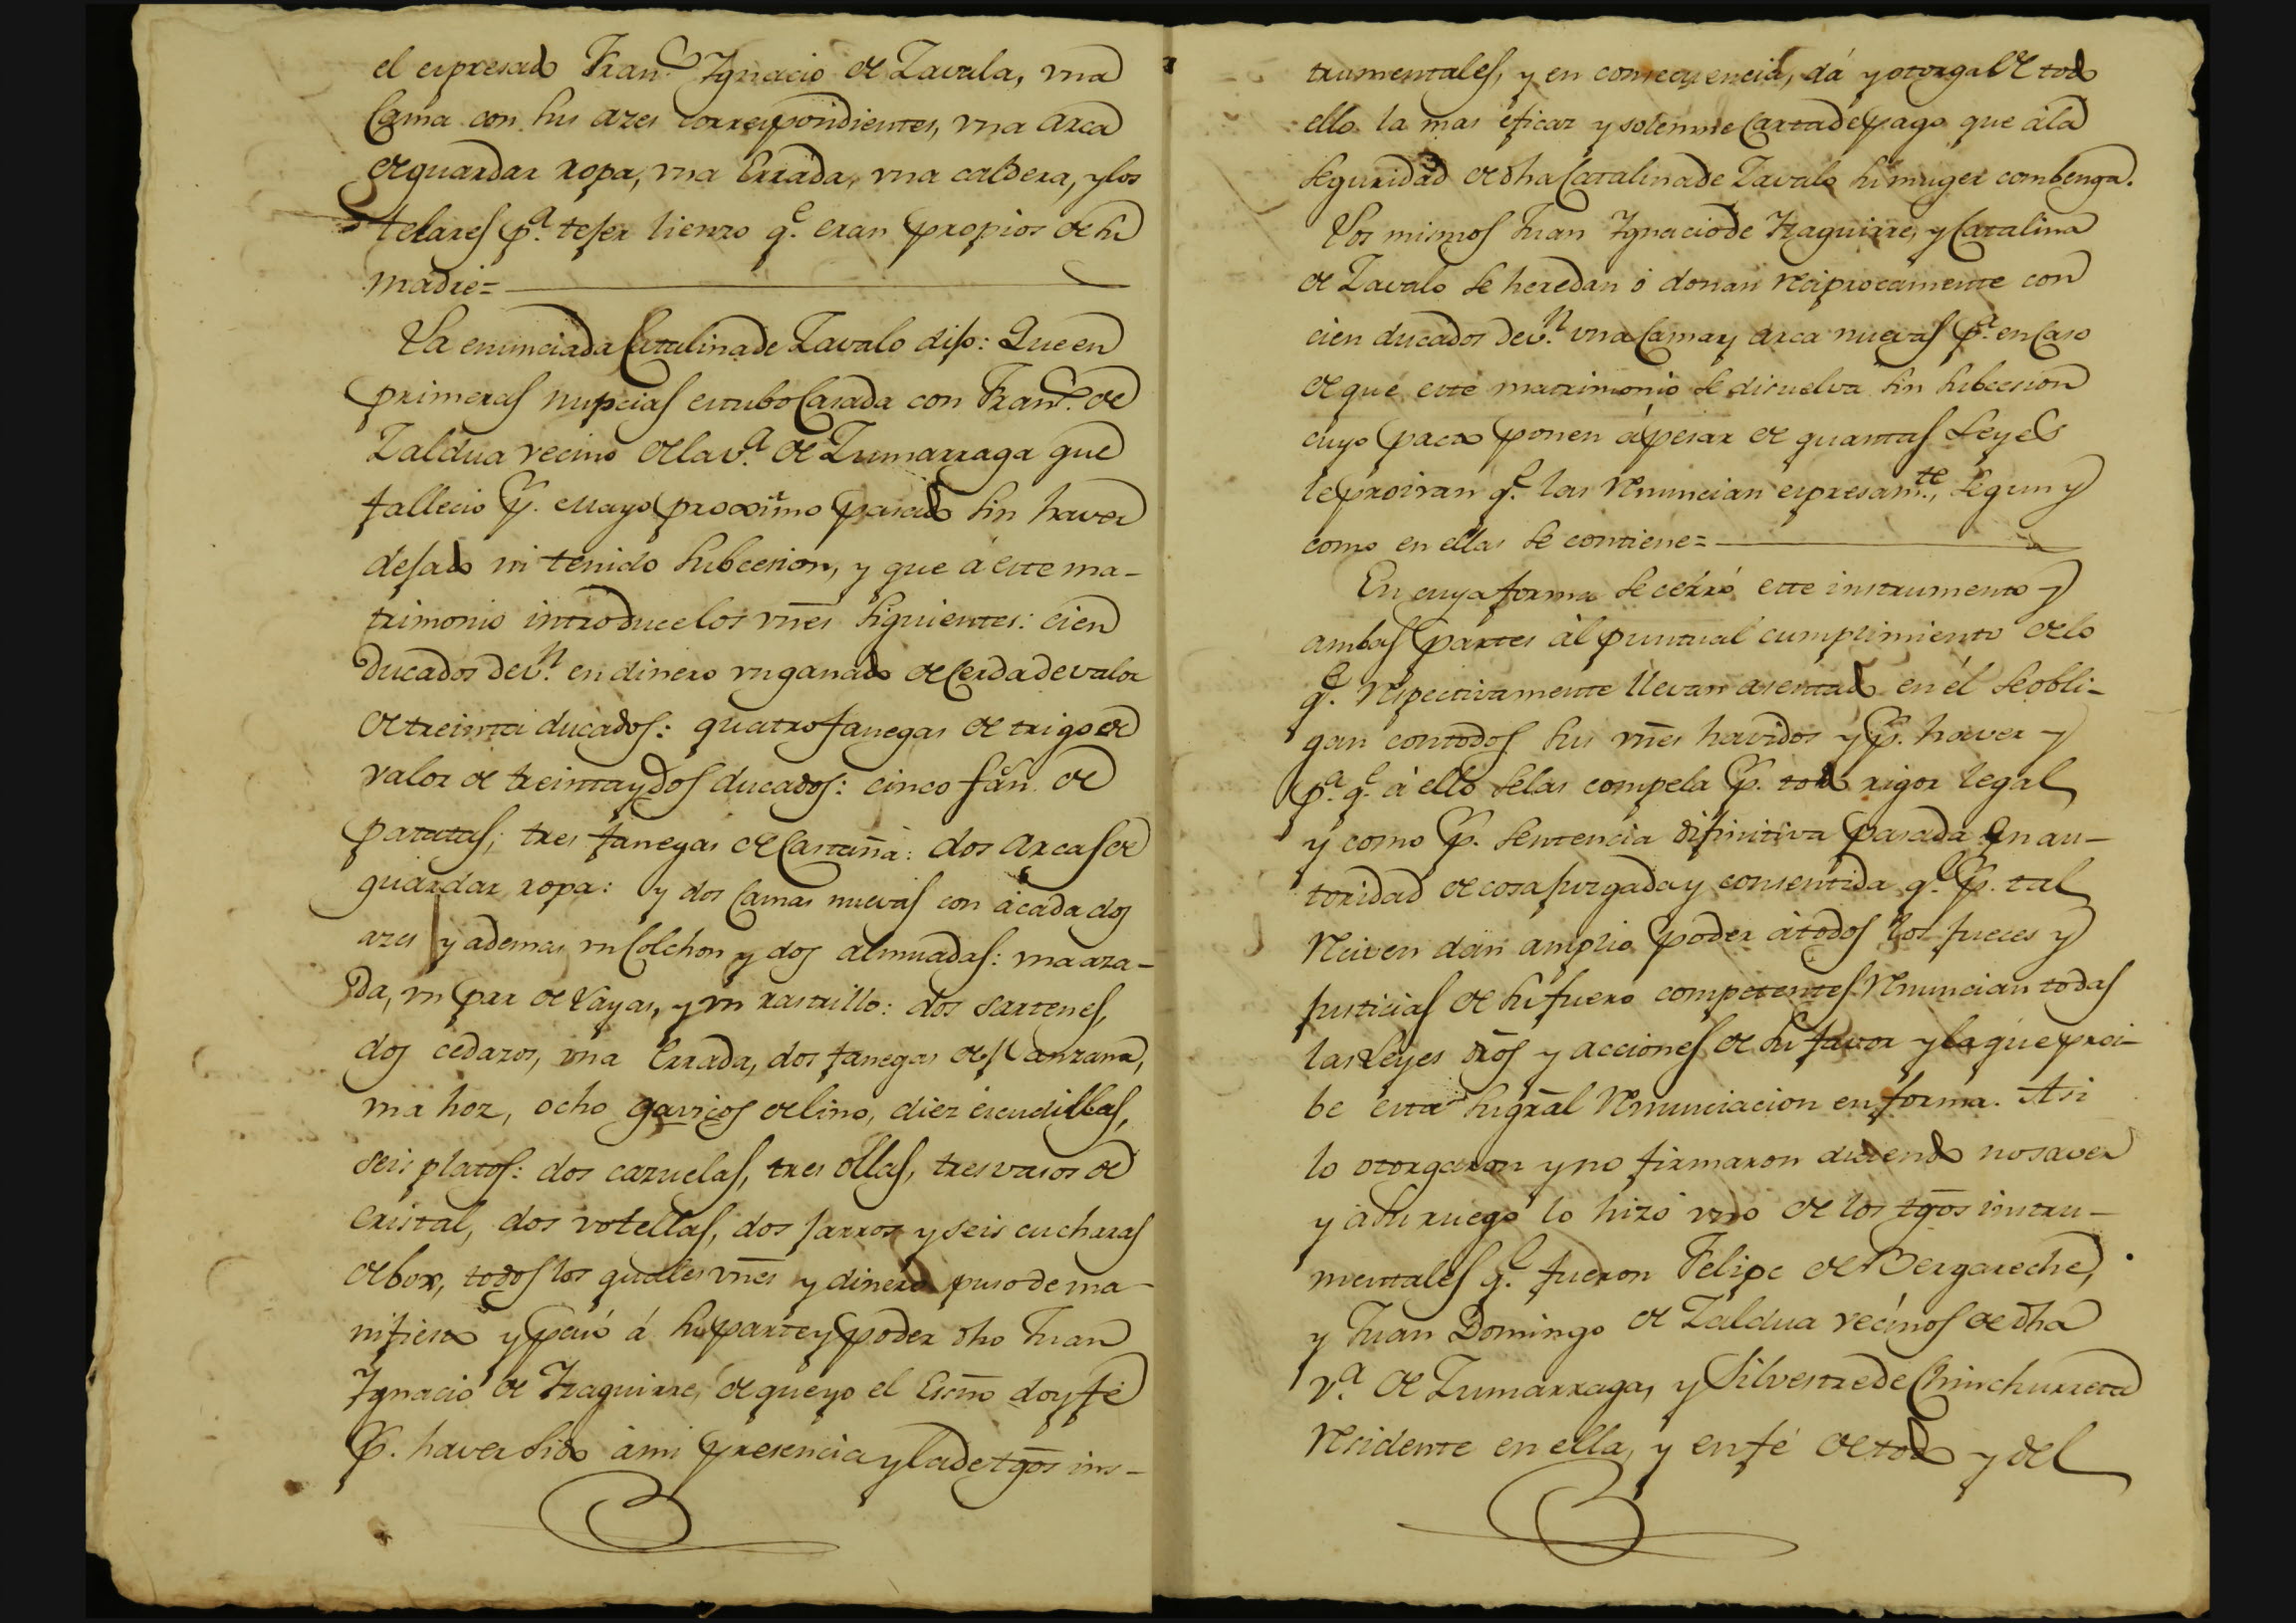 el expresado Fran.co Ygnacio de Zavala, vna
Cama con sus azes correspondientes, vna arca
de guardar ropa, vna Errada, vna caldera, y los
telares p.a teser lienzo q.e eran propios de su
madre=
La enunciada Catalina de Zavalo dijo: Que en
primeras nupcias estubo Casada con Fran.co de
Zaldua vecino de la v.a de Zumarraga que
fallecio p.r Mayo proximo pasado sin haver
dejado ni tenido subcesion, y que á este ma-
trimonio introduce los vnes siguientes: cien
Ducados de v.n en dinero vn ganado de Cerda de valor
de treinta ducados: quatro fanegas de trigo de
valor de treinta y dos ducados: cinco fan. de
patatas; tres fanegas de Castaña: dos arcas de
guardar ropa: y dos Camas nuevas con á cada dos
azes y ademas vn Colchon y dos almuadas: vna aza-
da, vn par de Layas, y vn rastrillo: dos sartenes,
dos cedazos, vna Errada, dos fanegas de Manzana,
vna hoz, ocho gavicos de lino, diez escudillas,
seis platos: dos cazuelas, tres ollas, tres vasos de
Cristal, dos votellas, dos jarros y seis cucharas
de box, todos los quales vnes y dinero puso de ma-
nifiesto y pasó á su parte y poder dho Juan
Ygnacio de Yzaguirre, de que yo el Escno doy fé
p.r haver sido á mi presencia y la de tgos ins-
trumentales, y en consecuencia, dá y otorga de todo
ello la mas eficaz y solemne Carta de pago que á la
seguridad de dha Catalina de Zavalo su muger combenga.
Los mismos Juan Ygnacio de Yzaguirre, y Catalina
de Zavalo se heredan ó donan reciprocamente con
cien ducados de v.n vna Cama y arca nuevas p.a en Caso
de que este matrimonio se disuelva sin subcesion
cuyo pacto ponen á pesar de quantas Leyes
le proivan q.e las renuncian expresam.te, segun y
como en ellas se contiene=
En cuya forma se cerró este instrumento y
ambas partes ál puntual cumplimiento de lo
q.e respectivamente llevan asentado en él se obli-
gan con todos sus vnes havidos y p.r haver y
p.a q.e á ello se las compela p.r todo rigor legal
y como p.r sentencia difinitiva pasada en au-
toridad de cosa juzgada y consentida q.e p.r tal
reciven dan amplio poder á todos los jueces y
justicias de su fuero competentes renuncian todas
las Leyes dros y acciones de su favor y la que proi-
be esta su gral renunciacion en forma. Asi
lo otorgaron y no firmaron diciendo no saver
y á su ruego lo hizo vno de los tgos instru-
mentales q.e fueron Felipe de Bergareche,
y Juan Domingo de Zaldua vecinos de dha
v.a de Zumarraga, y Silvestre de Chinchurreta
residente en ella, y en fé de todo y del